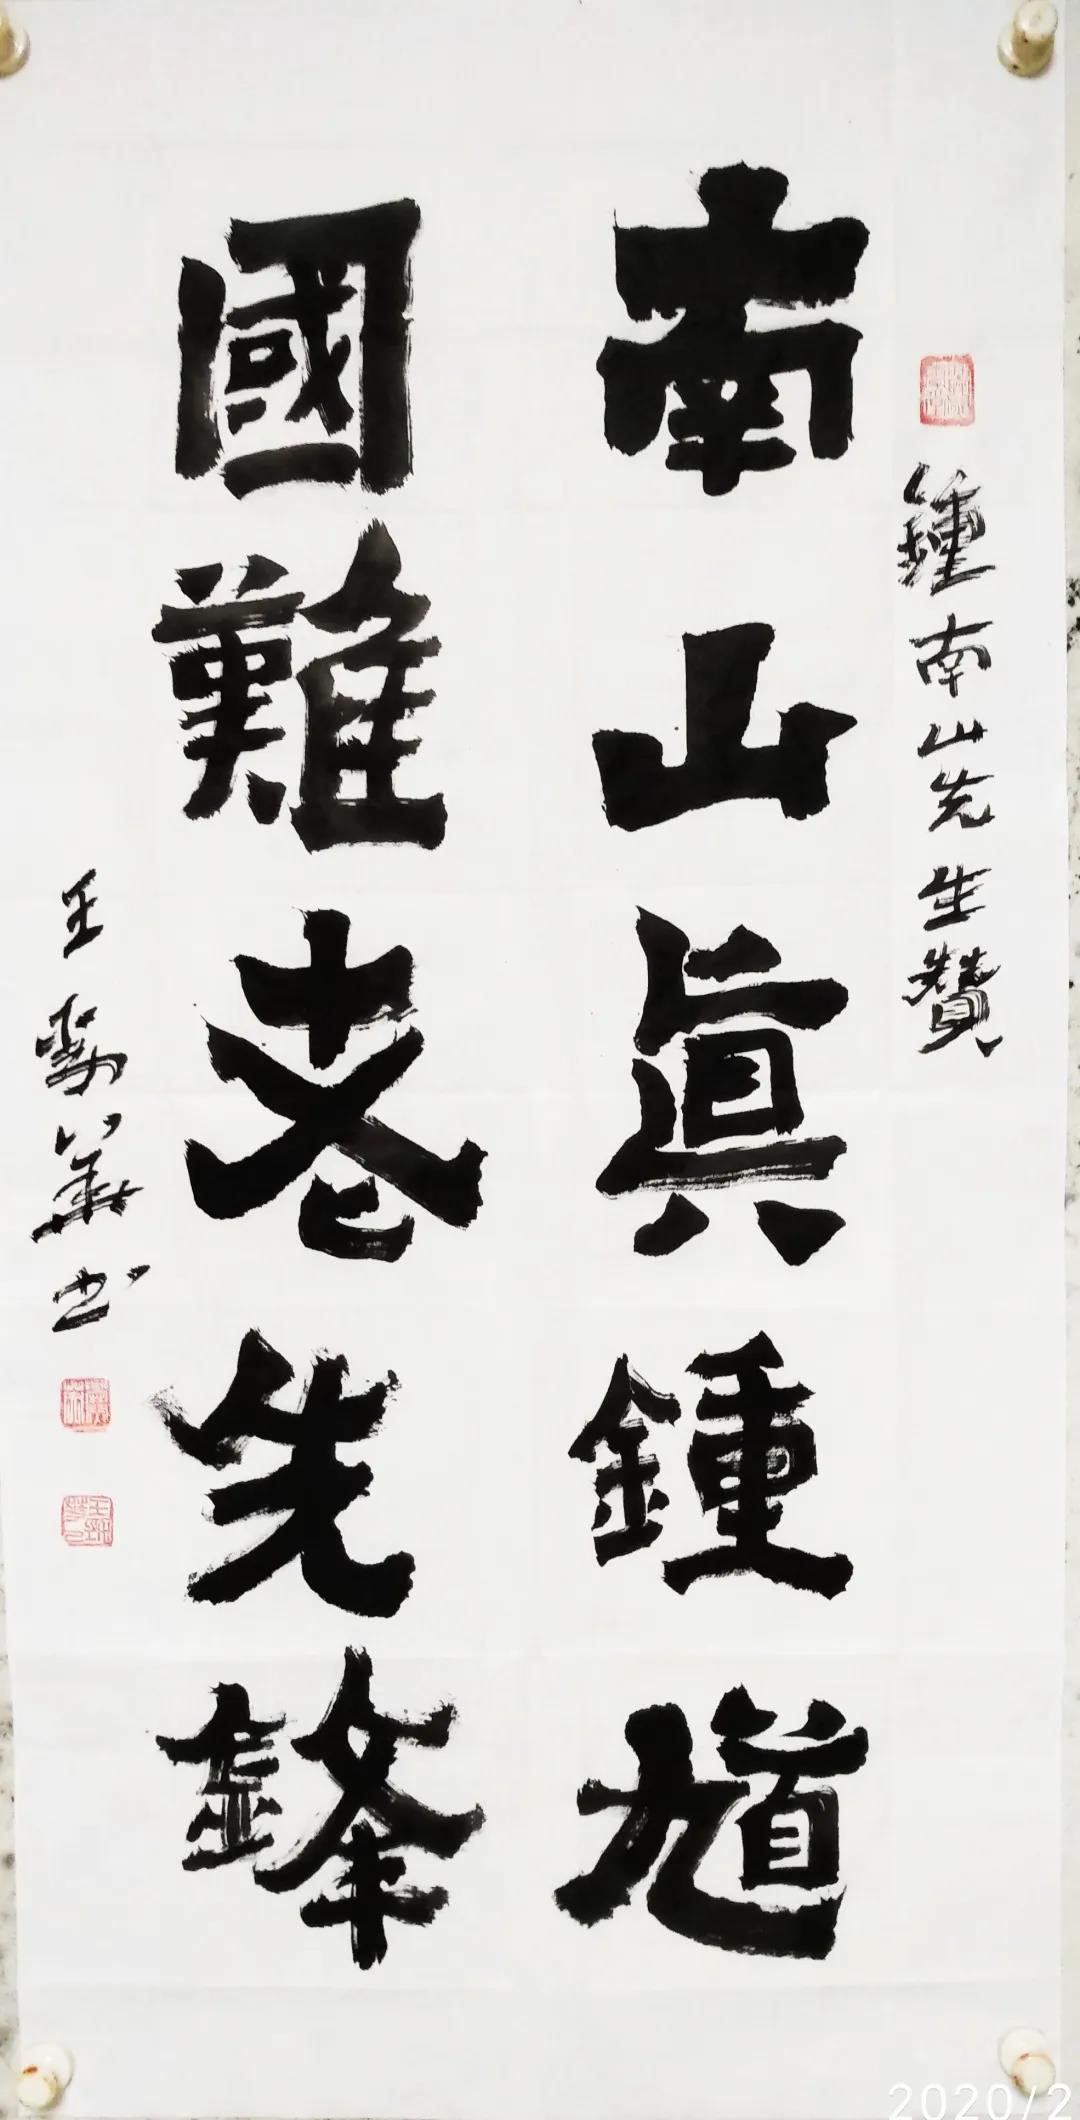 鍾南山先生贊
南山真鍾馗
國難老先鋒
王
書
2020/2